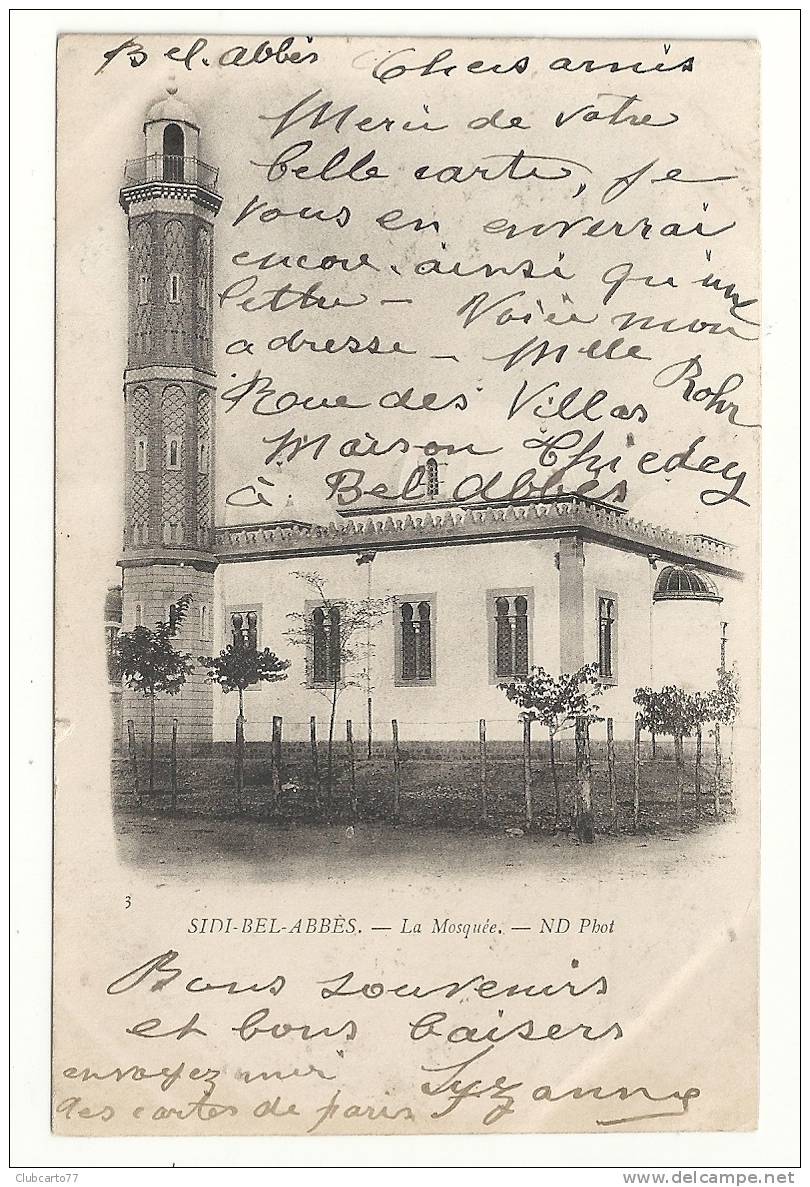 Bel. abbès Chers amis
Merci de votre
belle carte, je
vous en enverrai
encore. ainsi qu'une
lettre - Voici mon
adresse - Mlle Rohr
Rue des Villas
Maison
à Bel Abbès
3
SIDI-BEL-ABBÈS. — La Mosquée. — ND Phot
Bons souvenirs
et bons baisers
envoyez moi Suzanne
des cartes de paris
Clubcarto77 www.delcampe.net